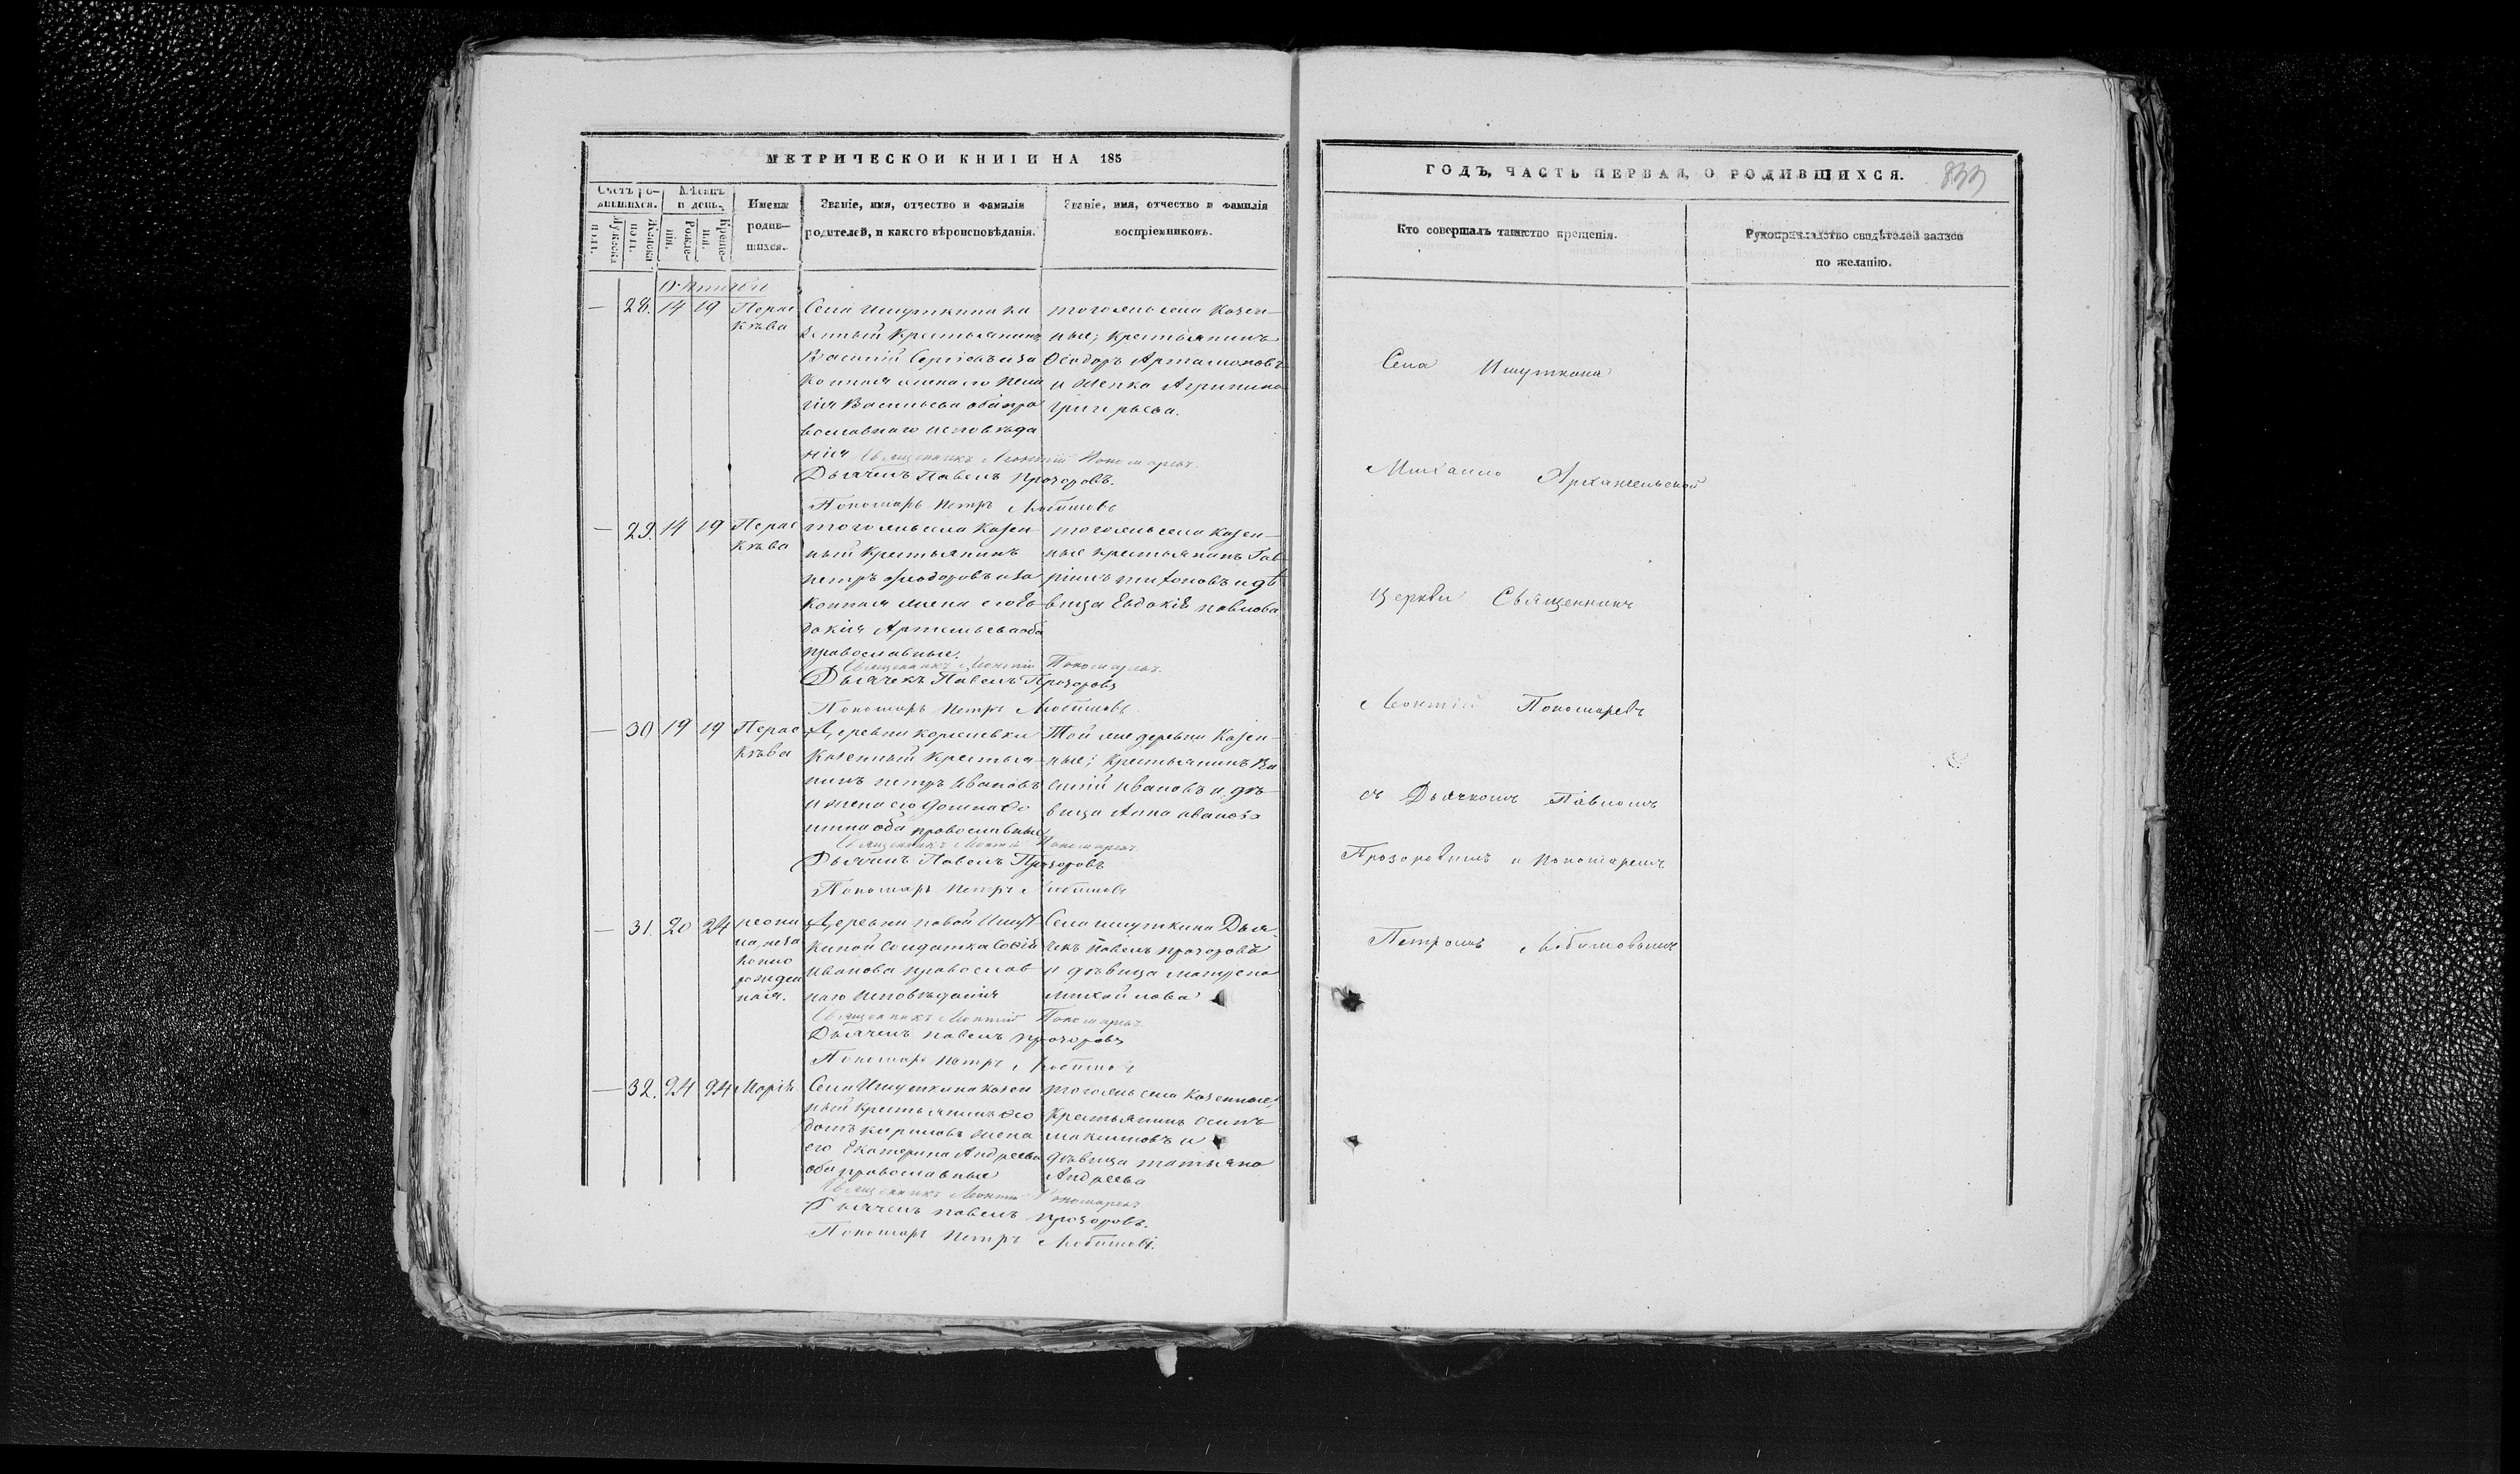 МЕТРИЧЕСКОЙ КНИГИ НА 185
Счетъ ро-
дившихся.
Мѣсяцъ
и день.
Имена
родив-
шихся.
Званіе, имя, отчество и фамилія
родителей, и какого вѣроисповѣданія.
Званіе, имя, отчество и фамилія
воспріемниковъ.
Мужеска
полъ.
Женска
полъ.
Рожде-
нія.
Креще-
нія.
28. 14 19 Перас
кѣва
Села Ишуткина ка
зенный Крестьянинъ
Василій Сергіевъ иза
конная жена его Пела
гія Васильева оба пра
вославнаго исповѣда
нія
тогожъ села Казен
ные; крестьянинъ
Ѳеодоръ Артамоновъ
и женка Агрипина
Григорьева.
Священникъ Леонтій Пономаревъ
Дьячекъ Павелъ Прозоровъ.
Пономарь Петръ Любимовъ
29. 14 19 Перас
кѣва
тогожъ села Казен
ный Крестьянинъ
петръ Ѳеодоровъ иза
конная жена его Ев
докія Артемьева оба
православные.
тогожъ села казен
ные крестьянинъ Гав
ріилъ и дѣ
вица Евдокія павлова
Священникъ Леонтій Пономаревъ
Дьячекъ Павелъ Прозоровъ
Пономарь Петръ Любимовъ
30 19 19 Перас
кѣва
Деревни
Казенный Крестья
нинъ петръ Ивановъ
и жена его
оба православные
Той же деревни Казен
ные; Крестьянинъ Ва
силій Ивановъ и дѣ
вица Анна иванова
Священникъ Леонтій Пономаревъ
Дьячекъ Павелъ Прозоровъ
Пономарь Петръ Любимовъ
31. 20 24
неза
конно
рожден
ная.
Деревни новой Ишут
киной Солдатка Софія
Иванова православ
наго исповѣданія
Села ишуткина Дья
чекъ Павелъ прозоровъ
и дѣвица матрена
михайлова
Священникъ Леонтій Пономаревъ
Дьячекъ павелъ прозоровъ
Пономарь Петръ Любимовъ
32. 24 24 Марія
Села Ишуткина казен
ный крестьянинъ Ѳео
дотъ кириловъ жена
его Екатерина Андреева
оба православные
тогожъ села Казенные,
Крестьянинъ осипъ
максимовъ и
дѣвица татьяна
Андреева
Священникъ Леонтій Пономаревъ
Дьячекъ павелъ прозоровъ.
Пономарь Петръ Любимовъ.
ГОДЪ, ЧАСТЬ ПЕРВАЯ, О РОДИВШИХСЯ.
Кто совершалъ таинство крещенія.
Рукоприкладство свидѣтелей записи
по желанію.
Села Ишуткина
Михаило Архангельской
Церкви Священникъ
Леонтій Пономаревъ
съ Дьячкомъ Павломъ
Прозоровымъ и пономаремъ
Петромъ Любимовымъ